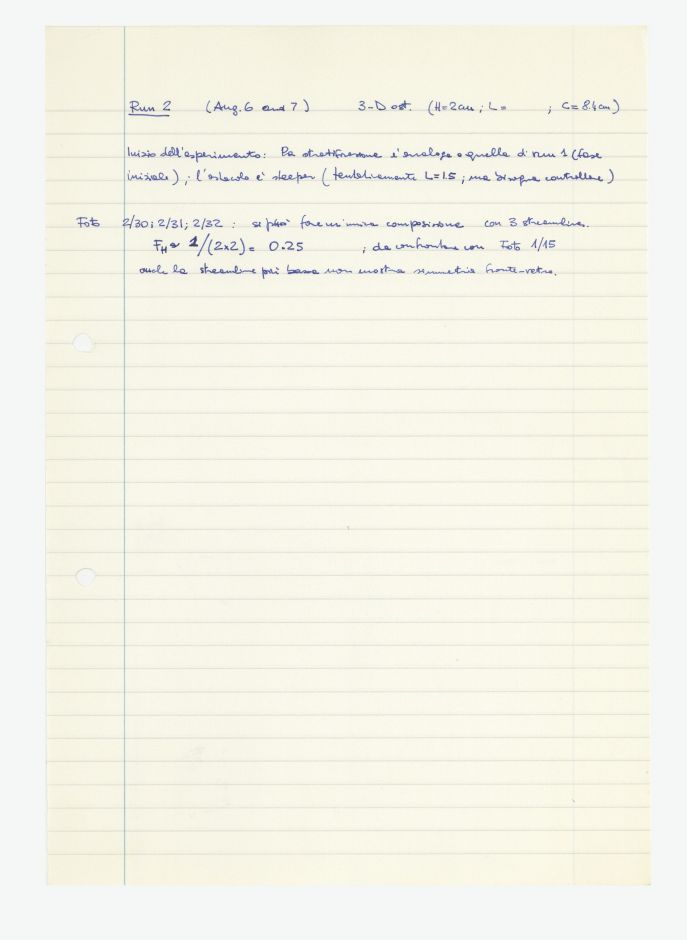 Run 2 (Aug. 6 and 7) 3-D ost. (H=2cm; L= ; C=8.4cm)
Inizio dell'esperimento: la stratificazione è analoga a quella di run 1 (fase
iniziale); l'ostacolo è steeper (tentativamente L=1.5; ma bisogna controllare)
Foto 2/30; 2/31; 2/32: si può fare un'unica composizione con 3 streamlines.
F_H ~ 1/(2x2) = 0.25 ; da confrontare con Foto 1/15
anche la streamline più bassa non mostra simmetria fronte-retro.